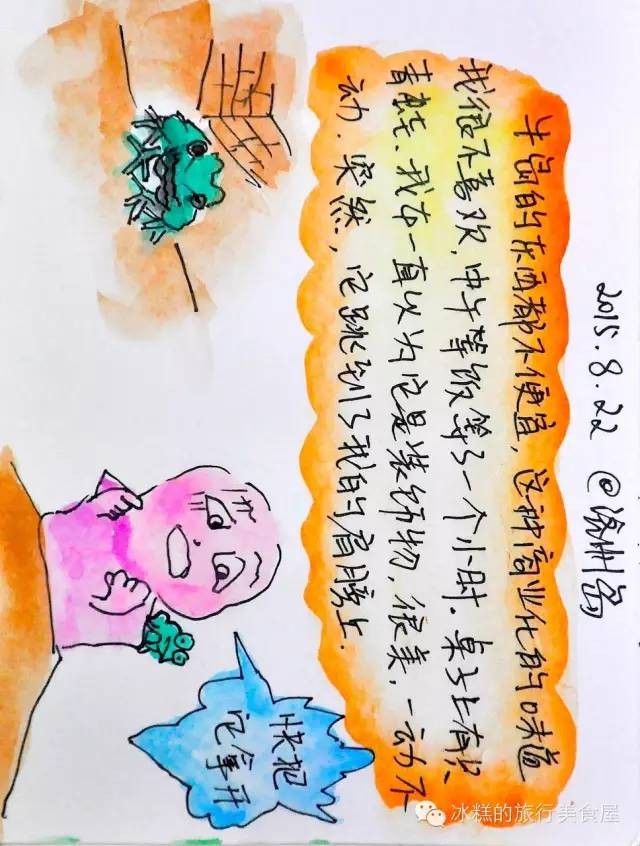 2015.8.22 @济州岛
牛岛的东西都不便宜,这种商业化的味道
我很不喜欢,中午等饭等了一个小时.桌子上有只
青蛙、我本一直以为它是装饰物,很美,一动不
动.突然,它跳到了我的肩膀上.
快把
它拿开
冰糕的旅行美食屋